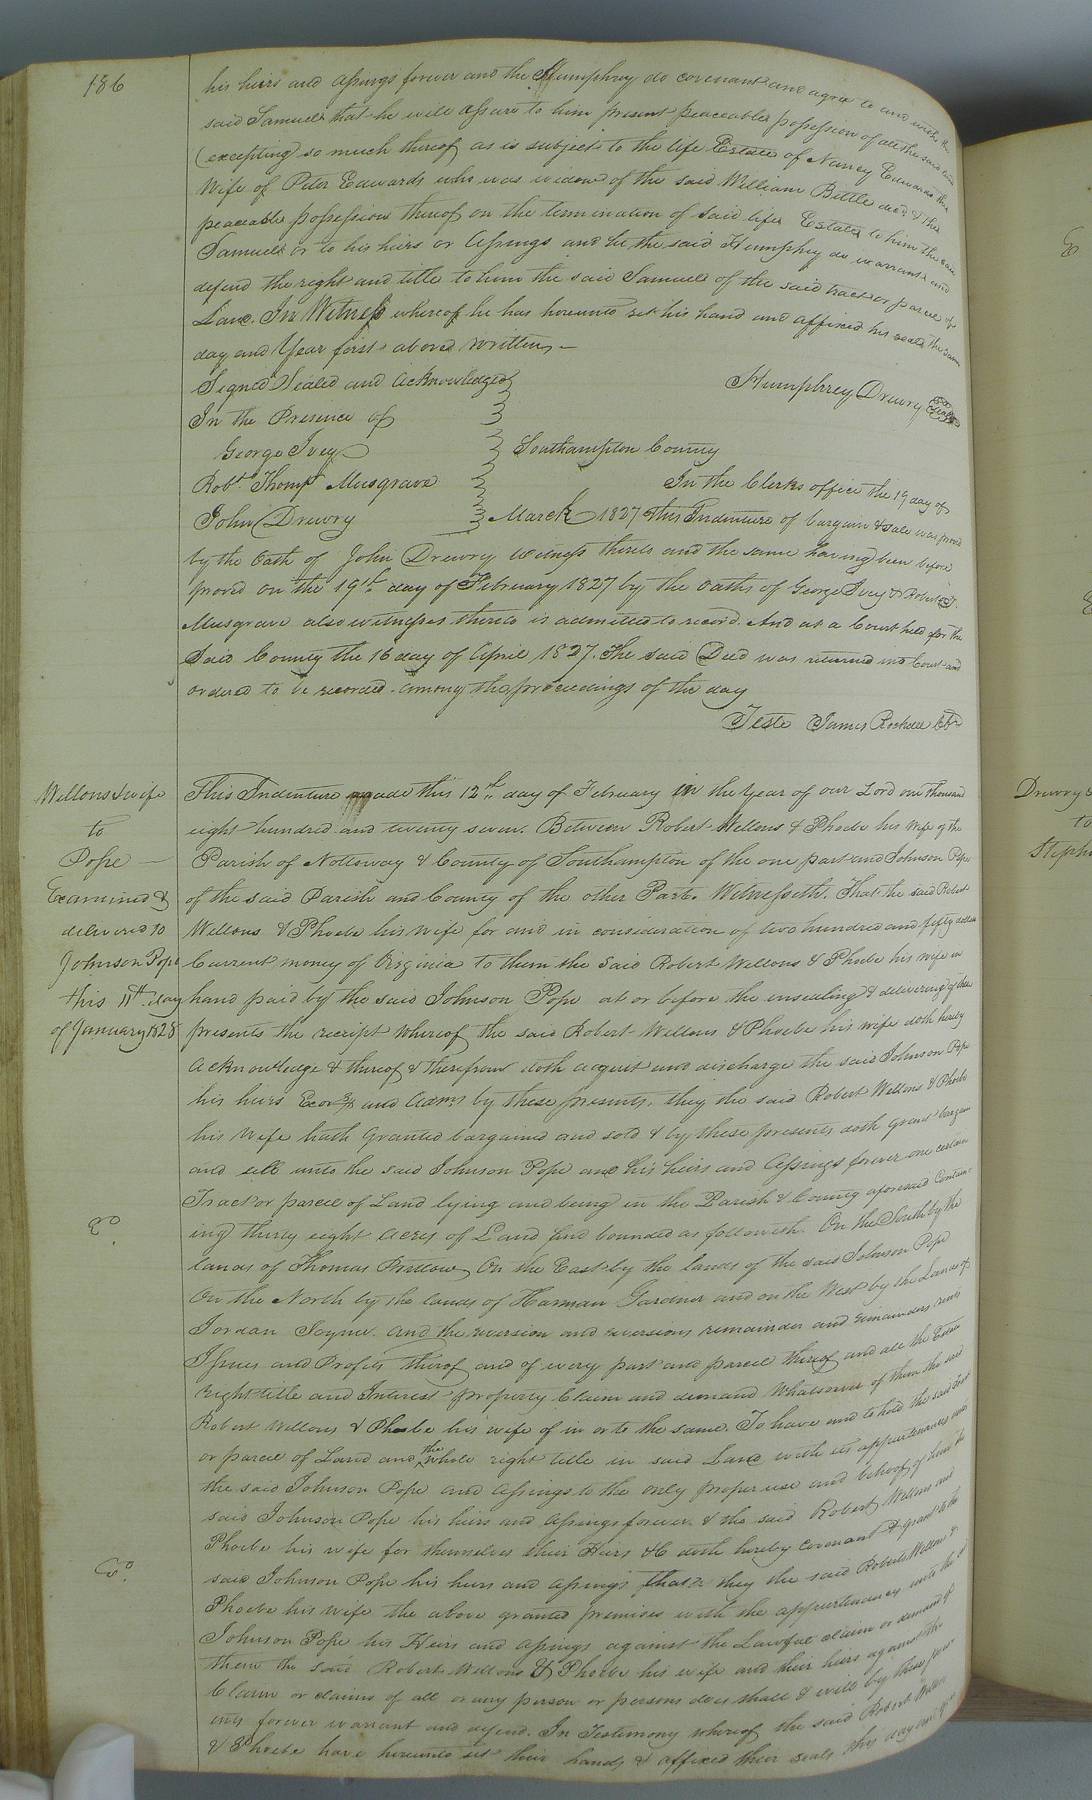 186
his heirs and assigns forever and the Humphrey do covenant and agree to and with the
said Samuel that he will assure to him present peaceable possession of all the said land
(excepting so much thereof as is subject to the life Estate of Nancy Edwards the
Wife of Peter Edwards who was widow of the said William Bittle decd & the
peaceable possession thereof on the termination of said life Estate to him the said
Samuel or to his heirs or assigns and he the said Humphrey do warrant and
defend the right and title to him the said Samuel of the said tract or parcel of
Land. In Witness whereof he has hereunto set his hand and affixed his seal the same
day and Year first above written —
Signed Sealed and Acknowledged
Humphrey Drewry Seal
In the Presence of
George Ivey
Southampton County
Robt. Thomps Musgrave
In the Clerks office the 19 day of
John Drewry
March 1827 This Indenture of bargain & sale was proved
by the Oath of John Drewry witness thereto and the same having been before
proved on the 19th day of February 1827 by the oaths of George Ivey & Robert T.
Musgrave also witnesses thereto is admitted to record. And at a Court held for the
Said County the 16 day of April 1827. The said Deed was returned into Court and
ordered to be recorded among the proceedings of the day
Teste James Rochelle
Wellons & wife
to
Pope —
Examined &
delivered to
Johnson Pope
this 11th day
of January 1828
This Indenture made this 12th day of February in the Year of our Lord one thousand
eight hundred and twenty seven. Between Robert Wellons & Phoebe his Wife of the
Parish of Nottoway & County of Southampton of the one part and Johnson Pope
of the said Parish and County of the other Part. Witnesseth. That the said Robert
Wellons & Phoebe his wife for and in consideration of two hundred and fifty dollars
Current money of Virginia to them the said Robert Wellons & Phoebe his wife in
hand paid by the said Johnson Pope at or before the ensealing & delivering of these
presents the receipt whereof the said Robert Wellons & Phoebe his wife doth hereby
acknowledge & thereof & therefrom doth acquit and discharge the said Johnson Pope
his heirs Exors and Adms by these presents, they the said Robert Wellons & Phoebe
his Wife hath Granted bargained and sold & by these presents doth grant bargain
and sell unto the said Johnson Pope and his heirs and Assings forever one certain
Tract or parcel of Land lying and being in the Parish & County aforesaid Contain-
ing thirty eight acres of Land and bounded as followeth. On the South by the
lands of Thomas Pretlow, On the East by the lands of the said Johnson Pope
On the North by the lands of Harman Gardner and on the West by the Lands of
Jordan Joyner. And the reversion and reversions remainder and remainders rents
Issues and Profits thereof and of every part and parcel thereof and all the Estate
right title and Interest property Claim and demand Whatsoever of them the said
Robert Wellons & Phoebe his wife of in or to the same. To have and to hold the said Tract
or parcel of Land and the whole right title in said Land with its appurtenances unto
the said Johnson Pope and Assings to the only proper use and behoof of him the
said Johnson Pope his heirs and Assings forever. & the said Robert Wellons and
Phoebe his wife for themselves their Heirs &c doth hereby covenant & grant to the
said Johnson Pope his heirs and assings that they the said Robert Wellons &
Phoebe his Wife the above granted premises with the appurtenances unto the sd
Johnson Pope his Heirs and Assings against the Lawful claim or demand of
them the said Robert Wellons & Phoebe his wife and their heirs against the
Claim or claims of all or any person or persons does shall & will by these pres-
ents forever warrant and defend. In Testimony whereof the said Robert Wellons
& Phoebe have hereunto set their hands & affixed their seals this day and
Drewry &
to
Steph